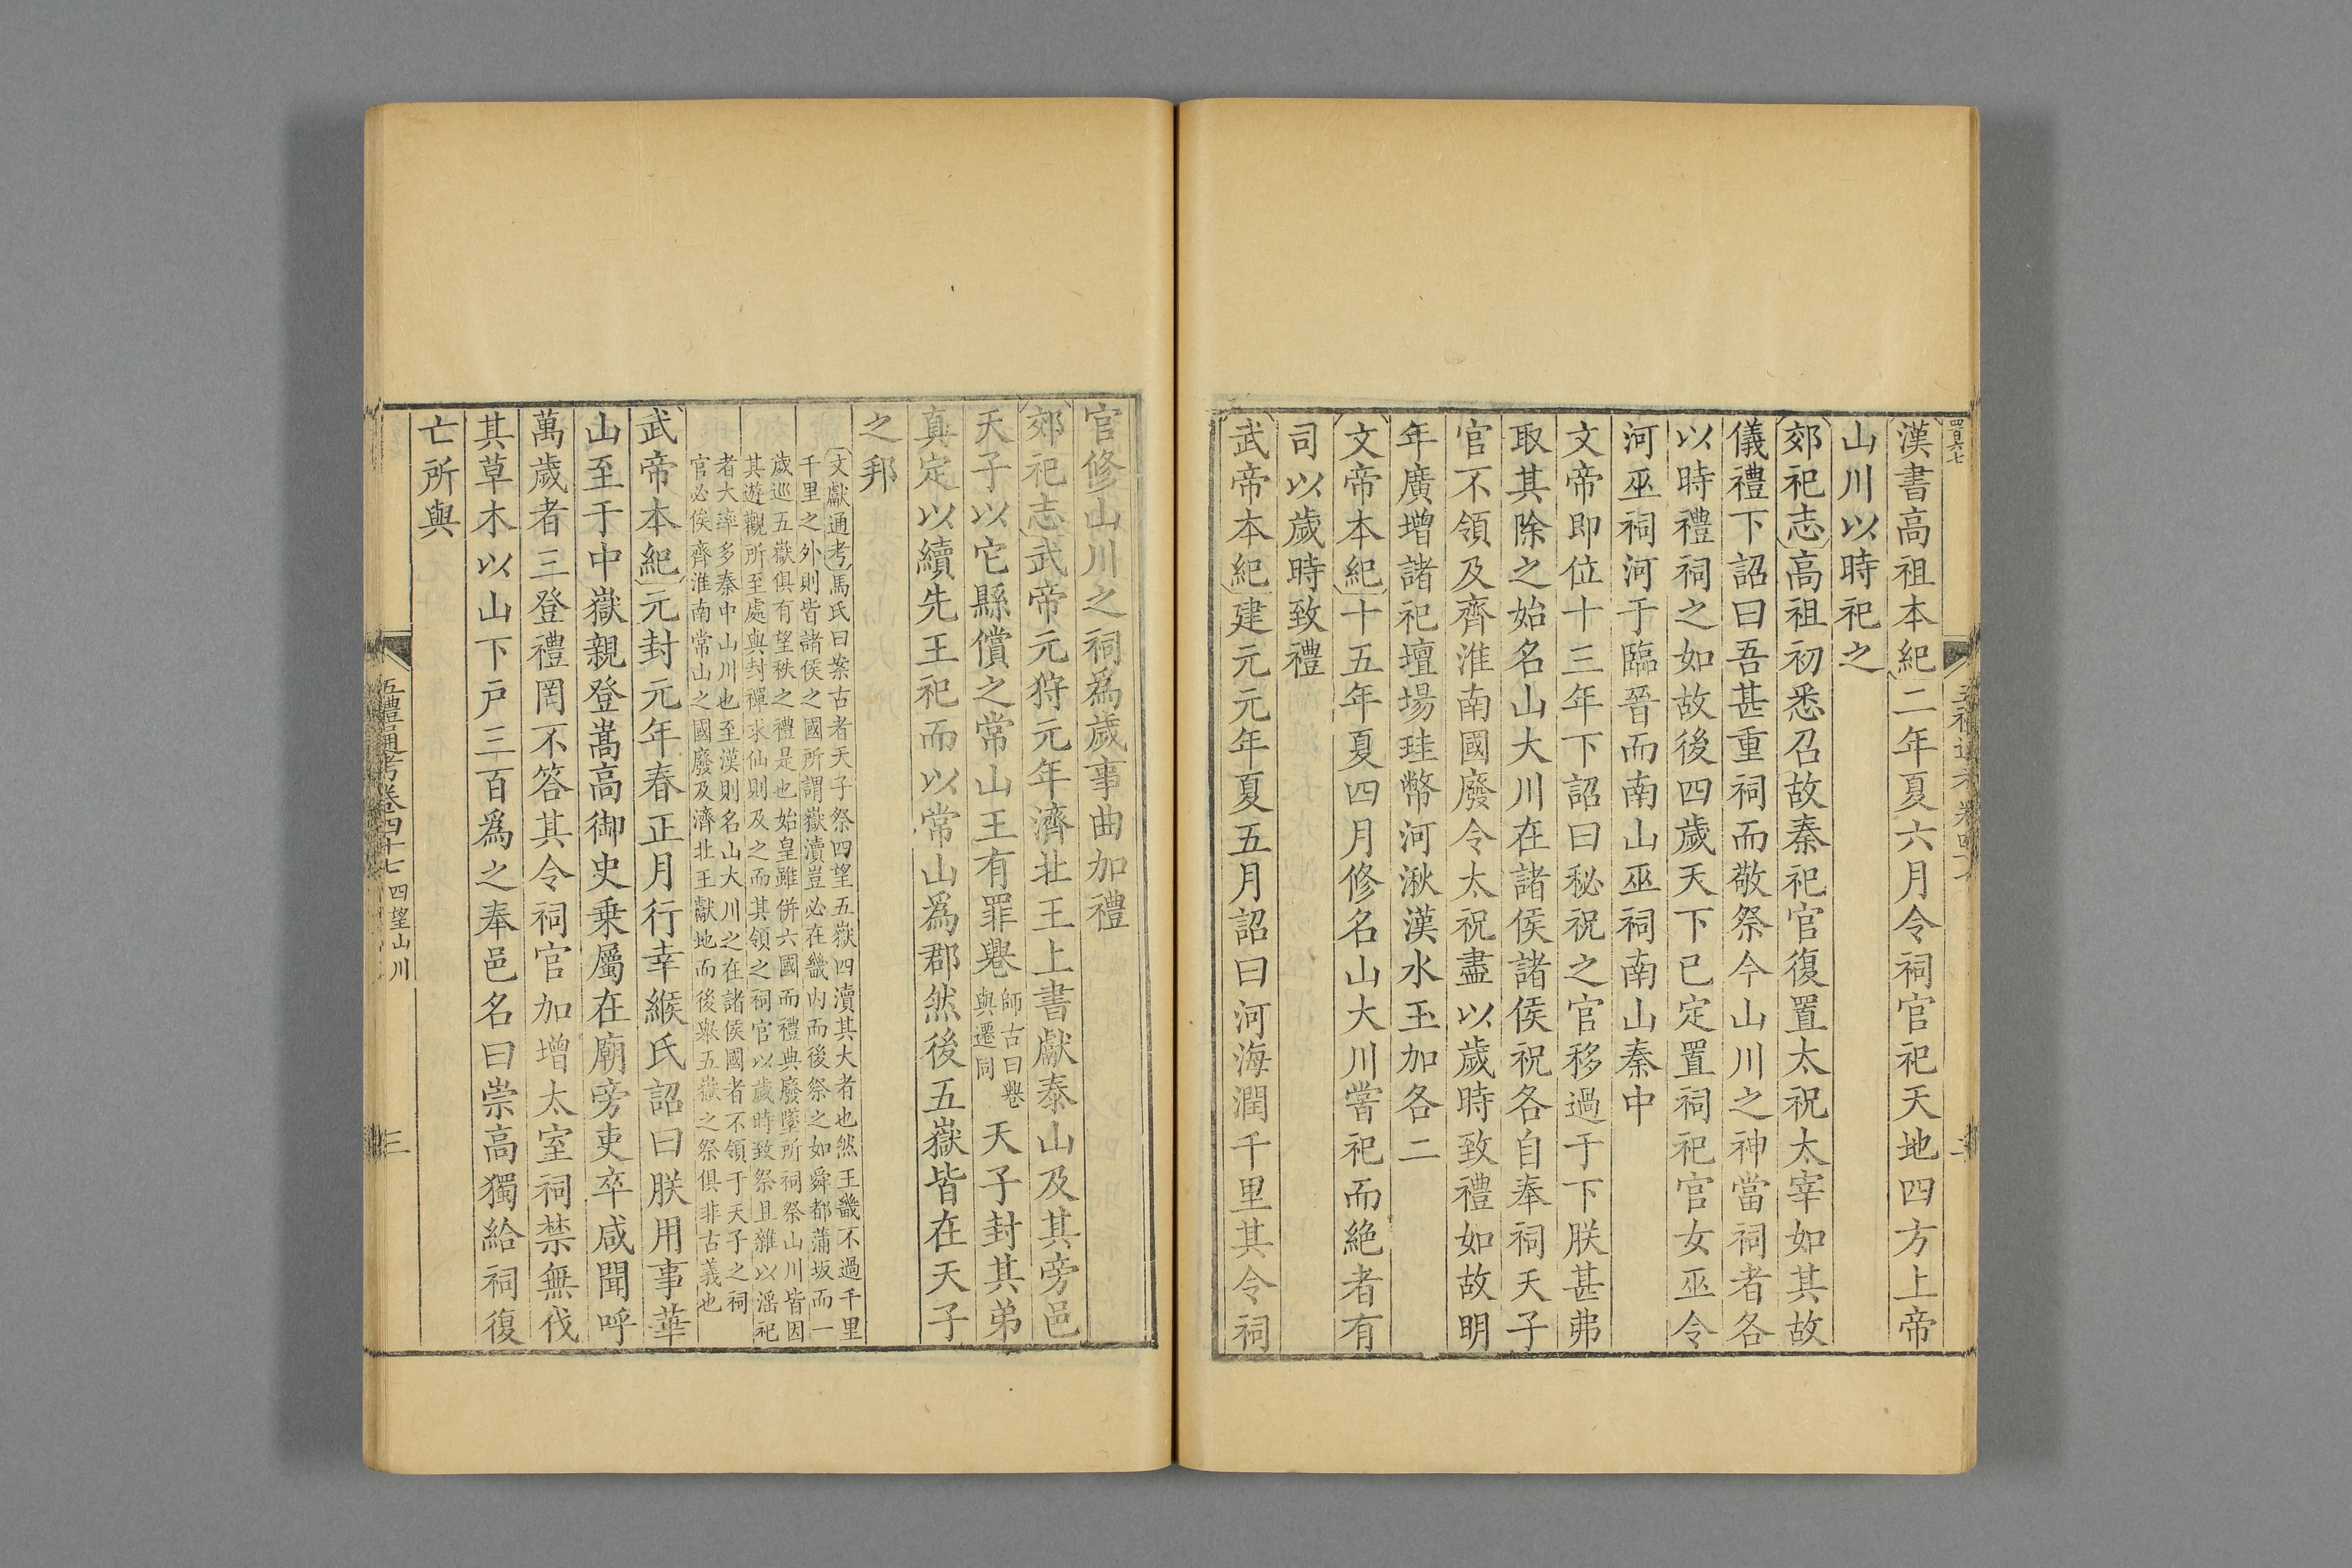 漢書高祖本紀二年夏六月令祠官祀天地四方上帝
山川以時祀之
郊祀志高祖初悉召故秦祀官復置太祝太宰如其故
儀禮下詔曰吾甚重祠而敬祭今山川之神當祠者各
以時禮祠之如故後四歲天下已定置祠祀官女巫令
河巫祠河于臨晉而南山巫祠南山秦中
文帝即位十三年下詔曰秘祝之官移過于下朕甚弗
取其除之始名山大川在諸侯諸侯祝各自奉祠天子
官不領及齊淮南國廢令太祝盡以歲時致禮如故明
年廣增諸祀壇場珪幣河湫漢水玉加各二
文帝本紀十五年夏四月修名山大川嘗祀而絶者有
司以歲時致禮
武帝本紀建元元年夏五月詔曰河海潤千里其令祠
官修山川之祠爲歲事曲加禮
郊祀志武帝元狩元年濟北王上書獻泰山及其旁邑
天子以它縣償之常山王有罪䙴師古曰䙴與遷同天子封其弟
真定以續先王祀而以常山爲郡然後五嶽皆在天子
之邦
文獻通考馬氏曰案古者天子祭四望五嶽四瀆其大者也然王畿不過千里
千里之外則皆諸侯之國所謂嶽瀆豈必在畿内而後祭之如舜都蒲坂而一
歲巡五嶽俱有望秩之禮是也始皇雖併六國而禮典廢墜所祠祭山川皆因
其遊觀所至處與封禪求仙則及之而其領之祠官以歲時致祭且雜以淫祀
者大率多秦中山川也至漢則名山大川之在諸侯國者不領于天子之祠
官必俟齊淮南常山之國廢及濟北王獻地而後舉五嶽之祭俱非古義也
武帝本紀元封元年春正月行幸緱氏詔曰朕用事華
山至于中嶽親登嵩高御史乗屬在廟旁吏卒咸聞呼
萬歲者三登禮罔不答其令祠官加增太室祠禁無伐
其草木以山下戸三百爲之奉邑名曰崇高獨給祠復
亡所與
五禮通考卷四十七 四望山川
三